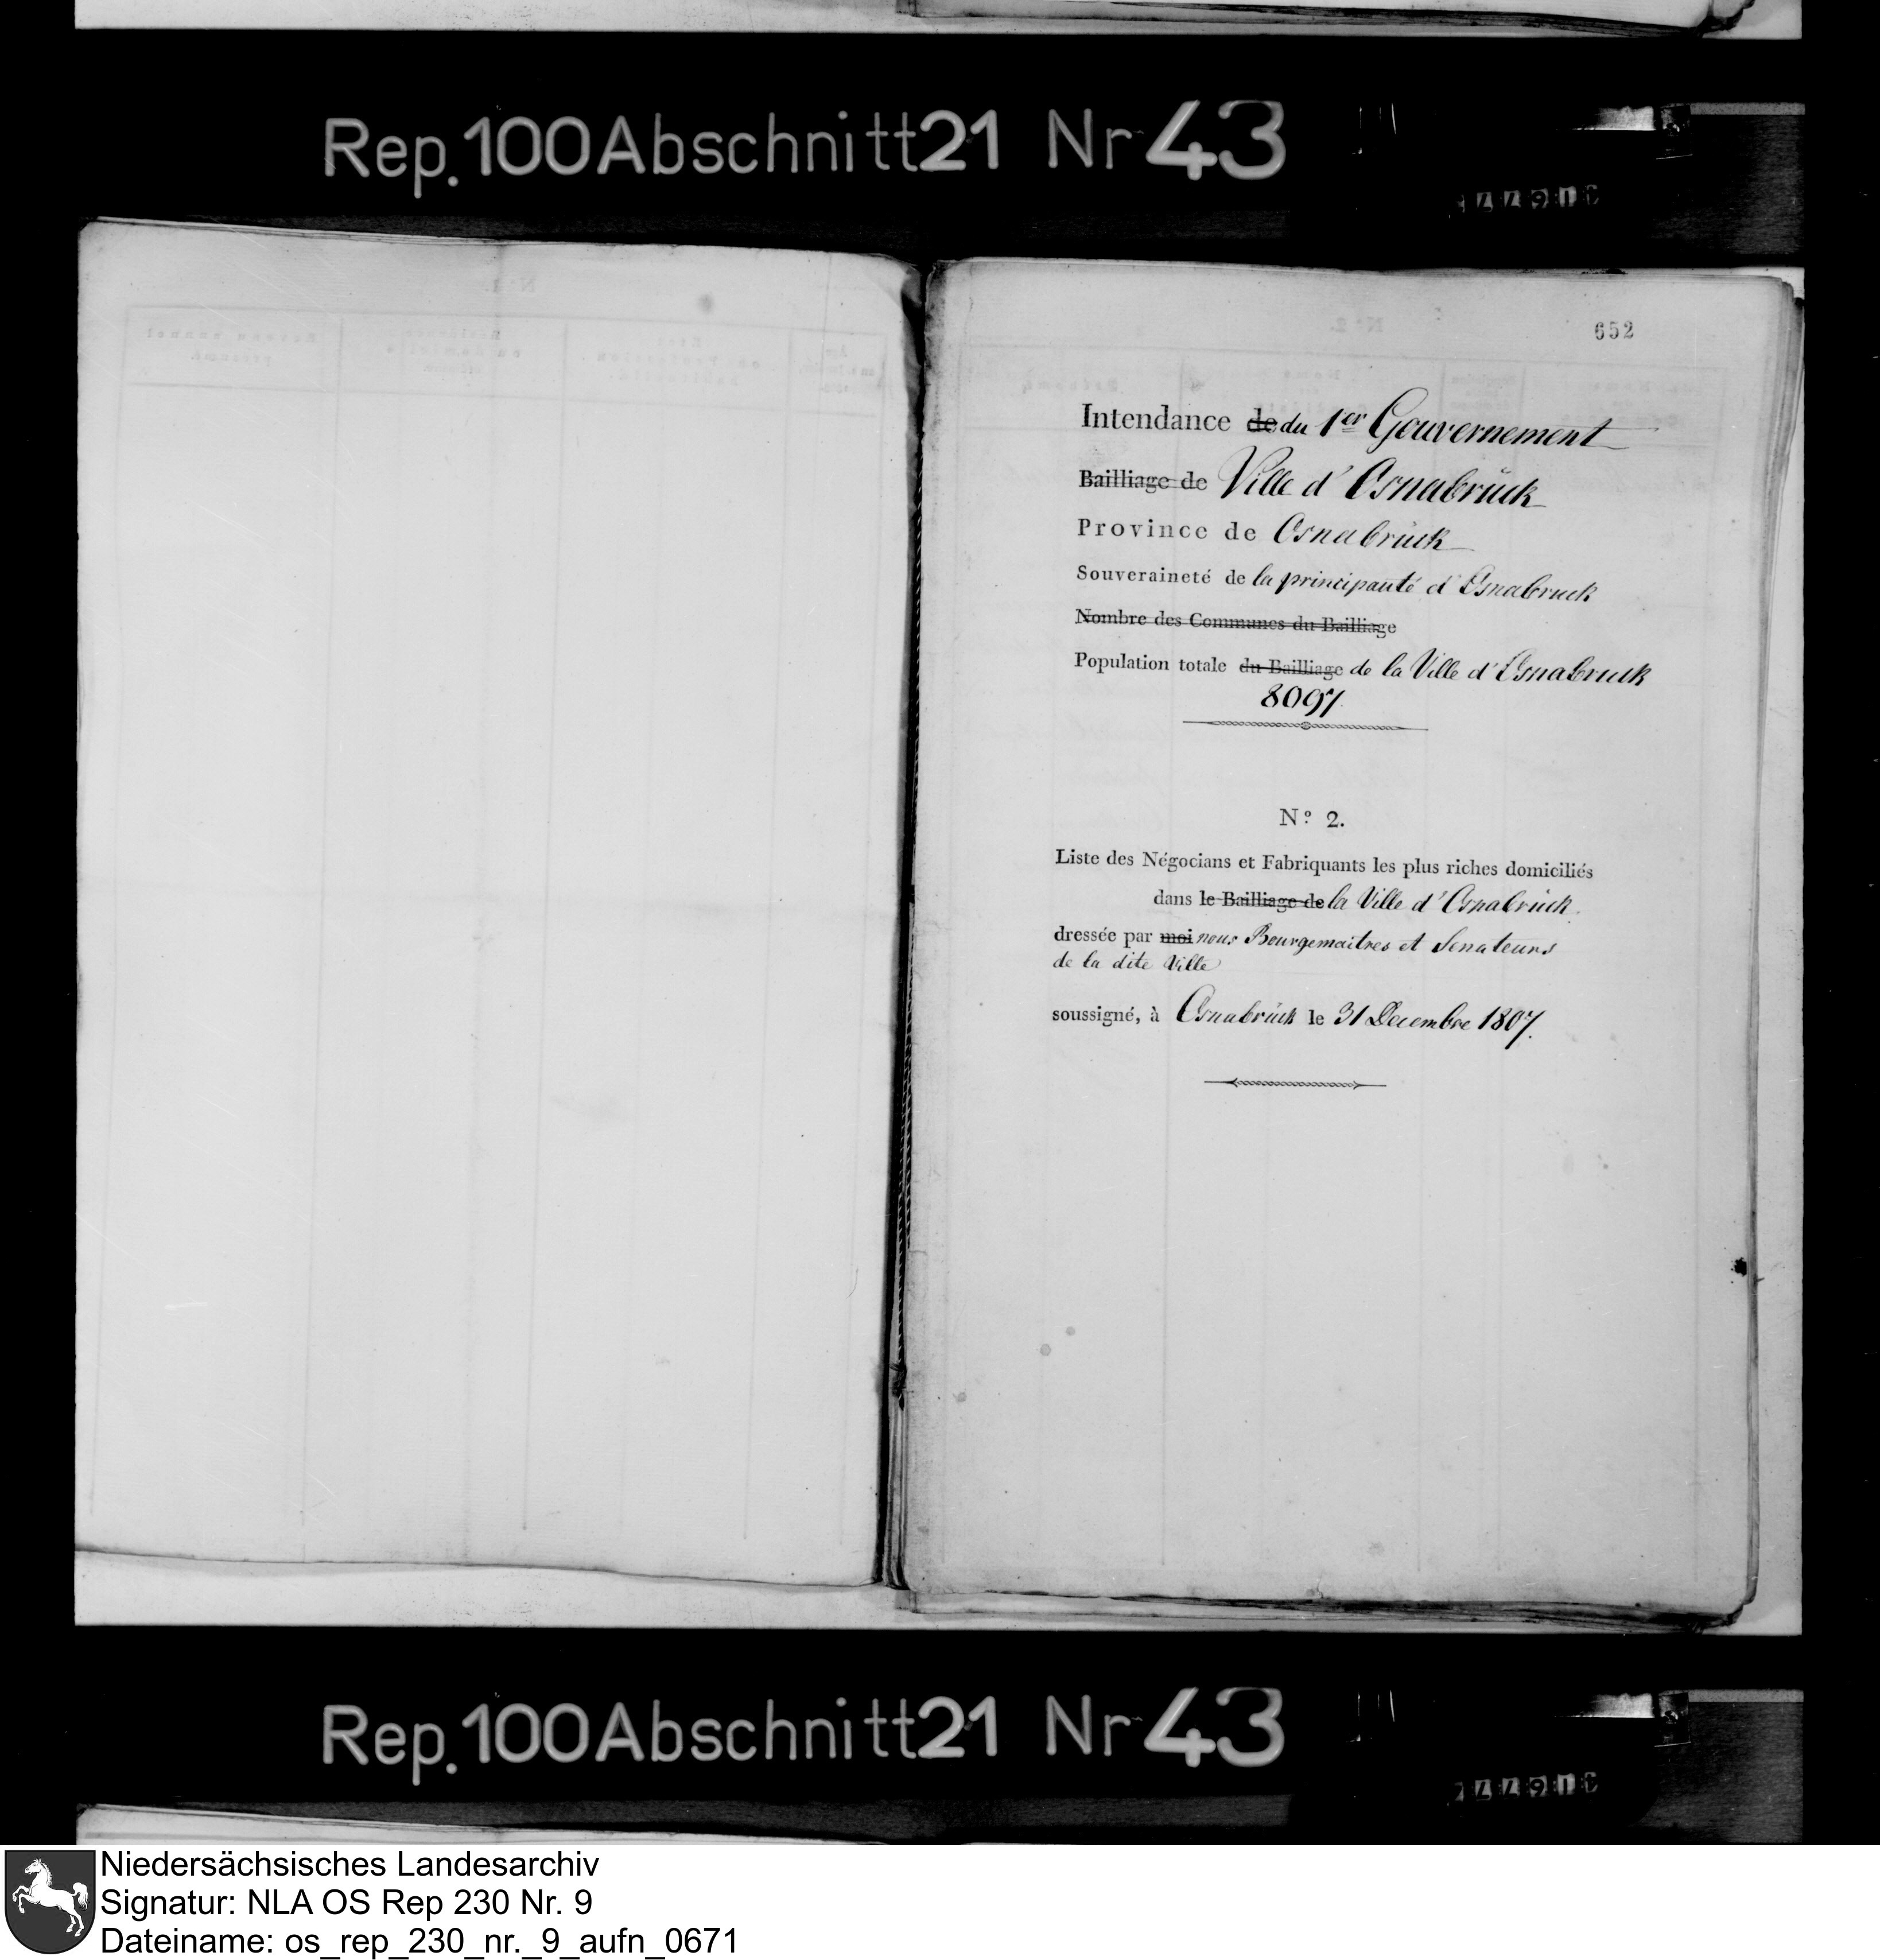 Rep.100 Abschnitt 21 Nr 43
652
Intendance de du 1er Gouvernement
Bailliage de Ville d'Osnabrück
Province de Osnabrück
Souveraineté de la principauté d'Osnabruck
Nombre des Communes du Bailliage
Population totale du Bailliage de la Ville d'Osnabruck
8091
Nº 2.
Liste des Négocians et Fabriquants les plus riches domiciliés
dans le Bailliage de la Ville d'Osnabrück.
dressée par moi nous Bourgemaitres et Senateurs
de la dite Ville
soussigné, à Osnabrück le 31 Decembre 1807.
Rep.100 Abschnitt 21 Nr 43
Niedersächsisches Landesarchiv
Signatur: NLA OS Rep 230 Nr. 9
Dateiname: os_rep_230_nr._9_aufn_0671